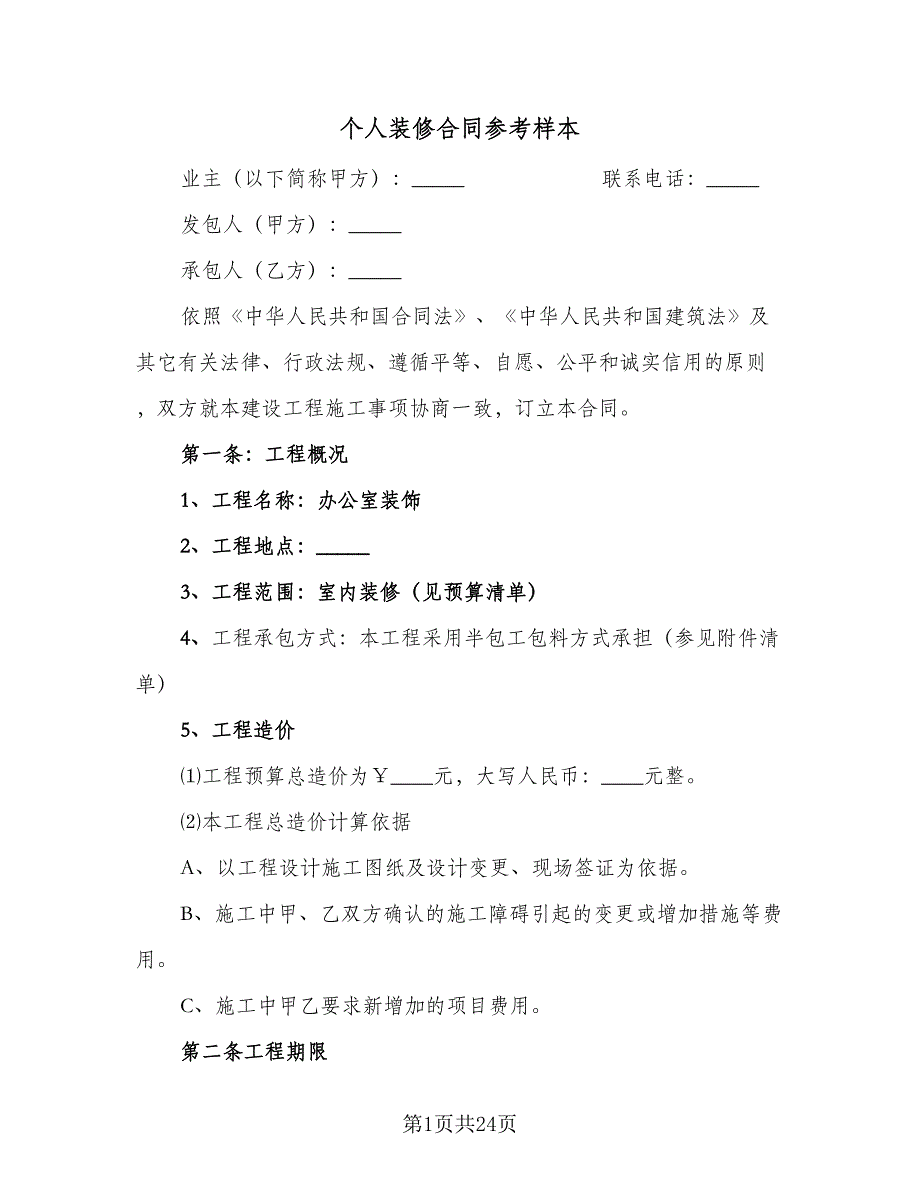 个人装修合同参考样本
业主（以下简称甲方）：_____ 联系电话：_____
发包人（甲方）：_____
承包人（乙方）：_____
依照《中华人民共和国合同法》、《中华人民共和国建筑法》及
其它有关法律、行政法规、遵循平等、自愿、公平和诚实信用的原则
，双方就本建设工程施工事项协商一致，订立本合同。
第一条：工程概况
1、工程名称：办公室装饰
2、工程地点：_____
3、工程范围：室内装修（见预算清单）
4、工程承包方式：本工程采用半包工包料方式承担（参见附件清
单）
5、工程造价
⑴工程预算总造价为￥____元，大写人民币：____元整。
⑵本工程总造价计算依据
A、以工程设计施工图纸及设计变更、现场签证为依据。
B、施工中甲、乙双方确认的施工障碍引起的变更或增加措施等费
用。
C、施工中甲乙要求新增加的项目费用。
第二条工程期限
第1页共24页